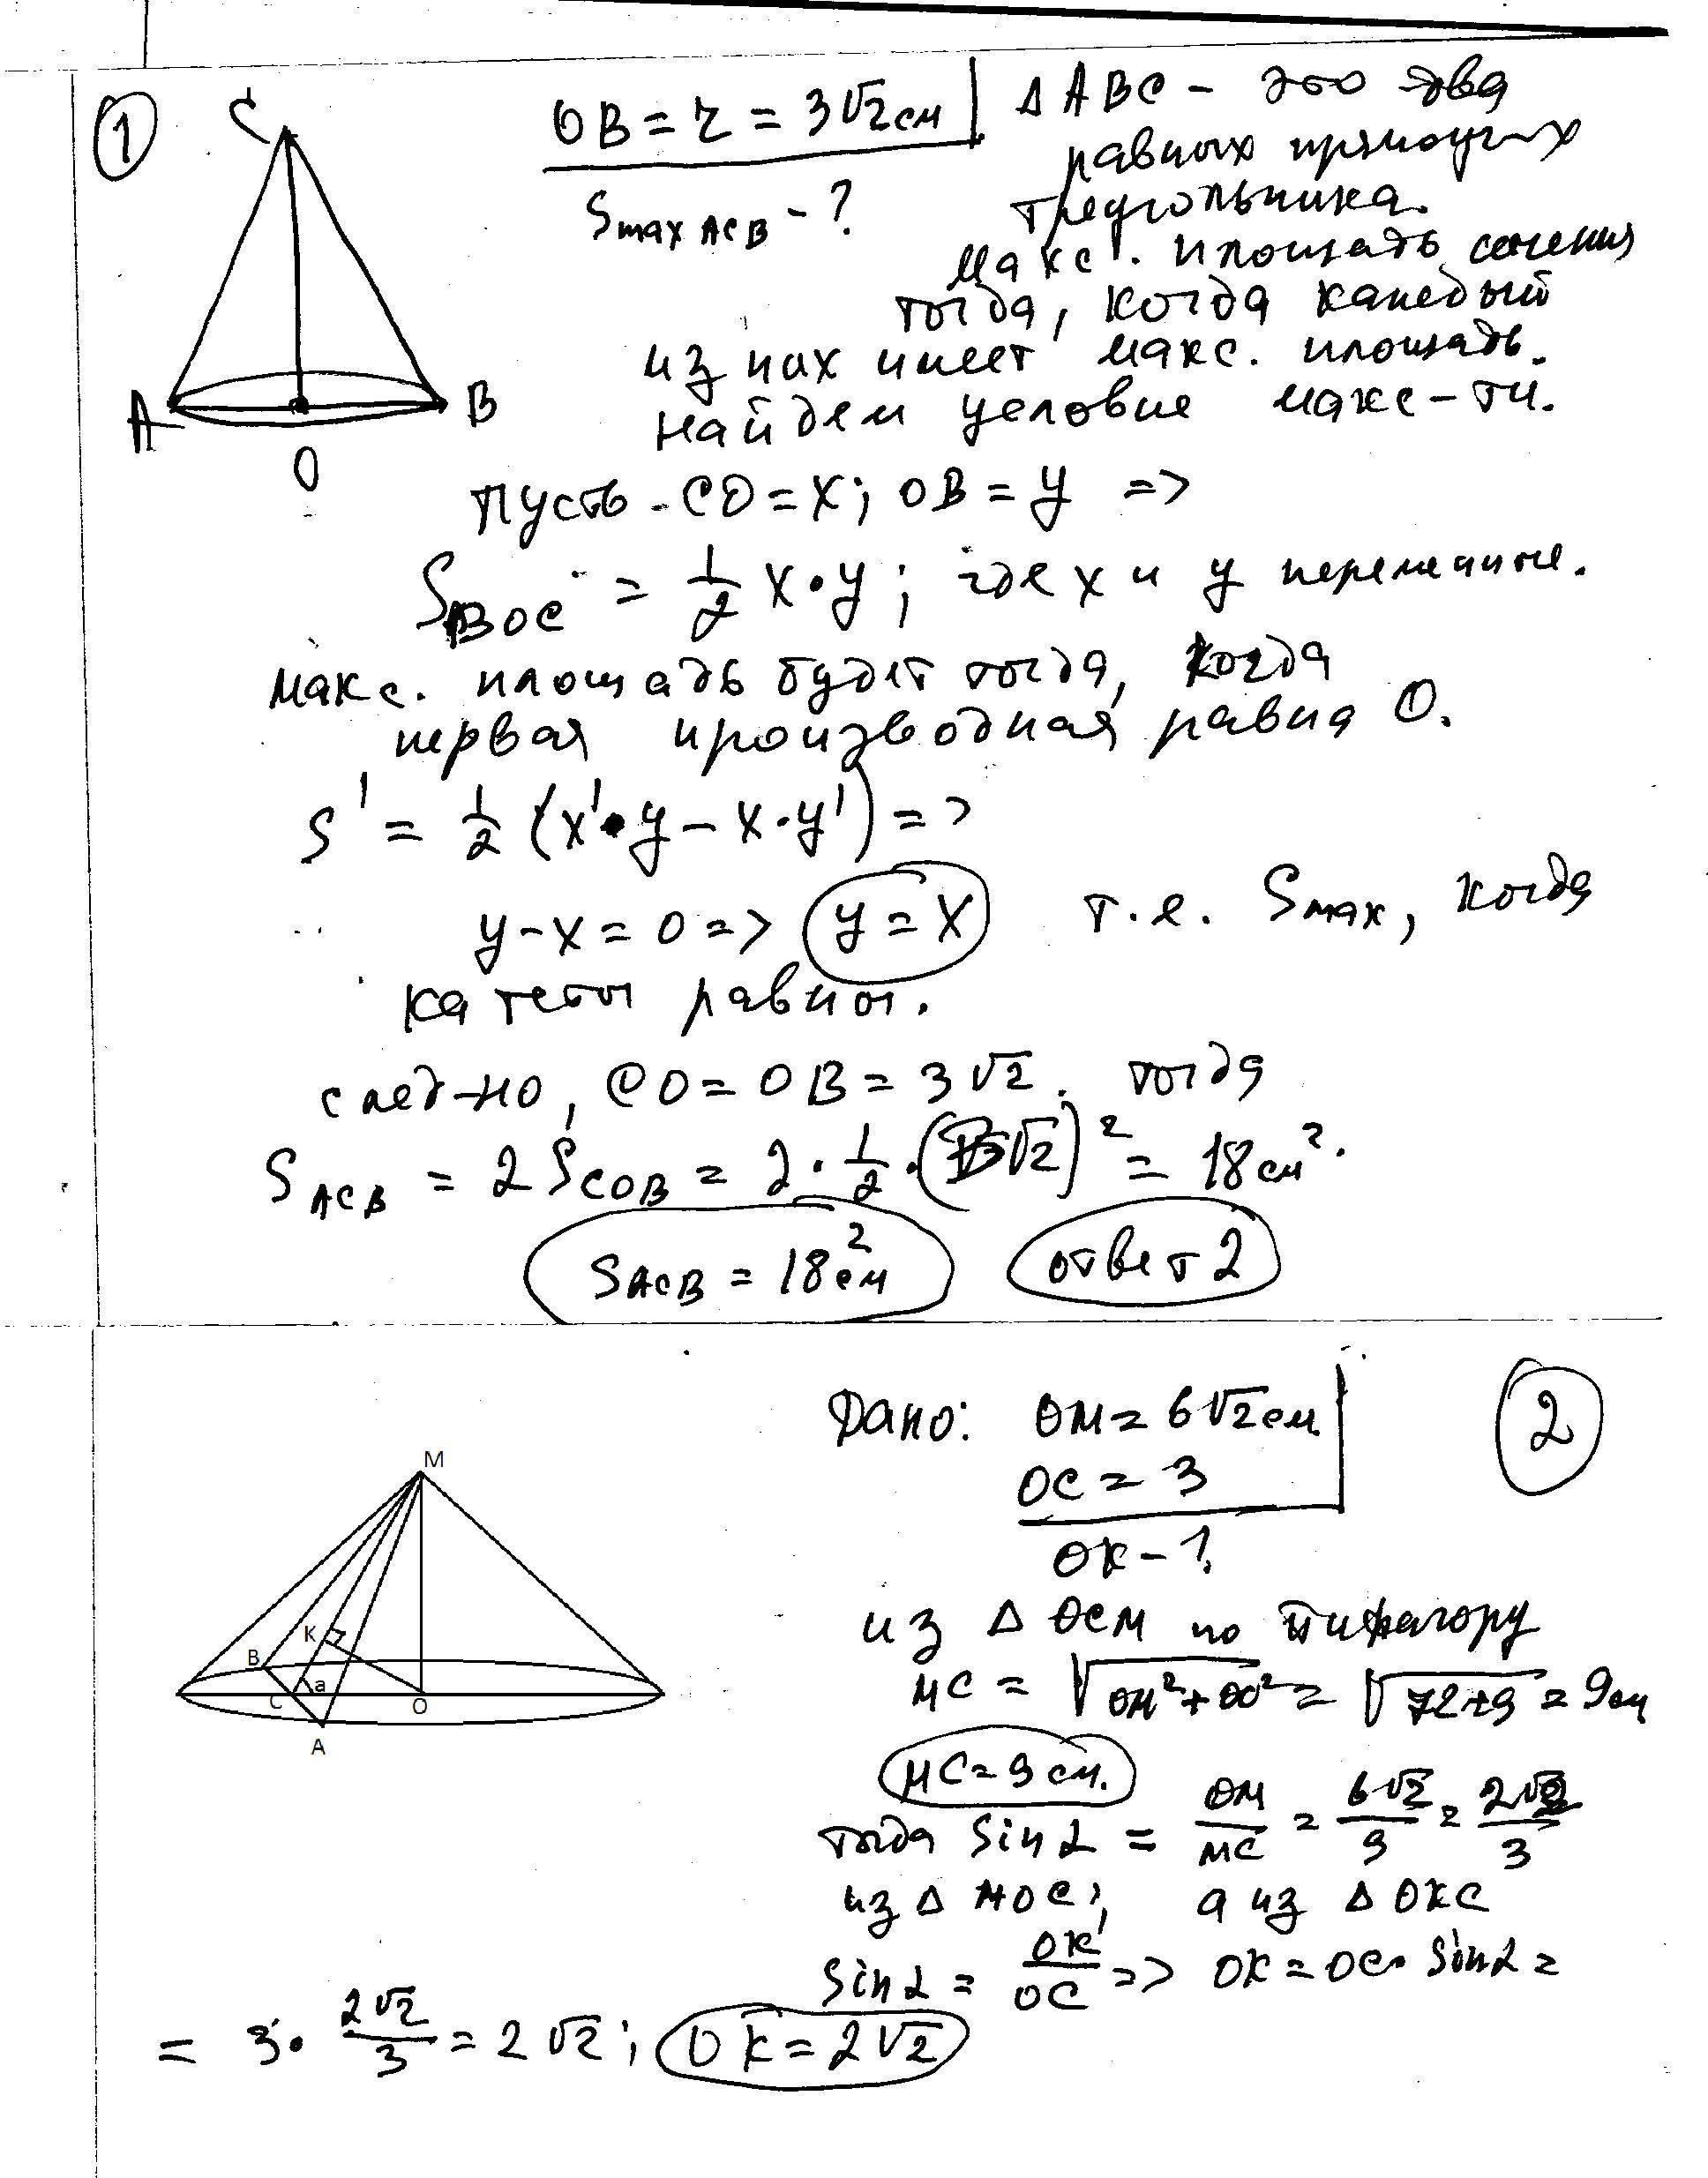 1
C
A
B
O
OB = r = 3√2 см
Smax ACB - ?
Δ ABC - это два
равных прямоуг-х
треугольника.
Макс. площадь сечения
тогда, когда каждый
из них имеет макс. площадь.
Найдем условие макс-ти.
Пусть CO = x; OB = y =>
S BOC = 1/2 x · y; где x и y переменные.
Макс. площадь будет тогда, когда
первая производная равна 0.
S' = 1/2 (x' · y - x · y') =>
y - x = 0 => y = x т.е. Smax, когда
катеты равны.
след-но, CO = OB = 3√2. тогда
S ACB = 2 S COB = 2 · 1/2 · (3√2)² = 18 см².
S ACB = 18 см² ответ 2
2
Дано: OM = 6√2 см
OC = 3
OK - ?
M
K
B
C
a
O
A
из Δ OCM по Пифагору
MC = √OM² + OC² = √72+9 = 9 см
MC = 9 см.
тогда Sin α = OM/MC = 6√2/9 = 2√2/3
из Δ MOC; а из Δ OKC
Sin α = OK/OC => OK = OC · Sin α =
= 3 · 2√2/3 = 2√2; OK = 2√2